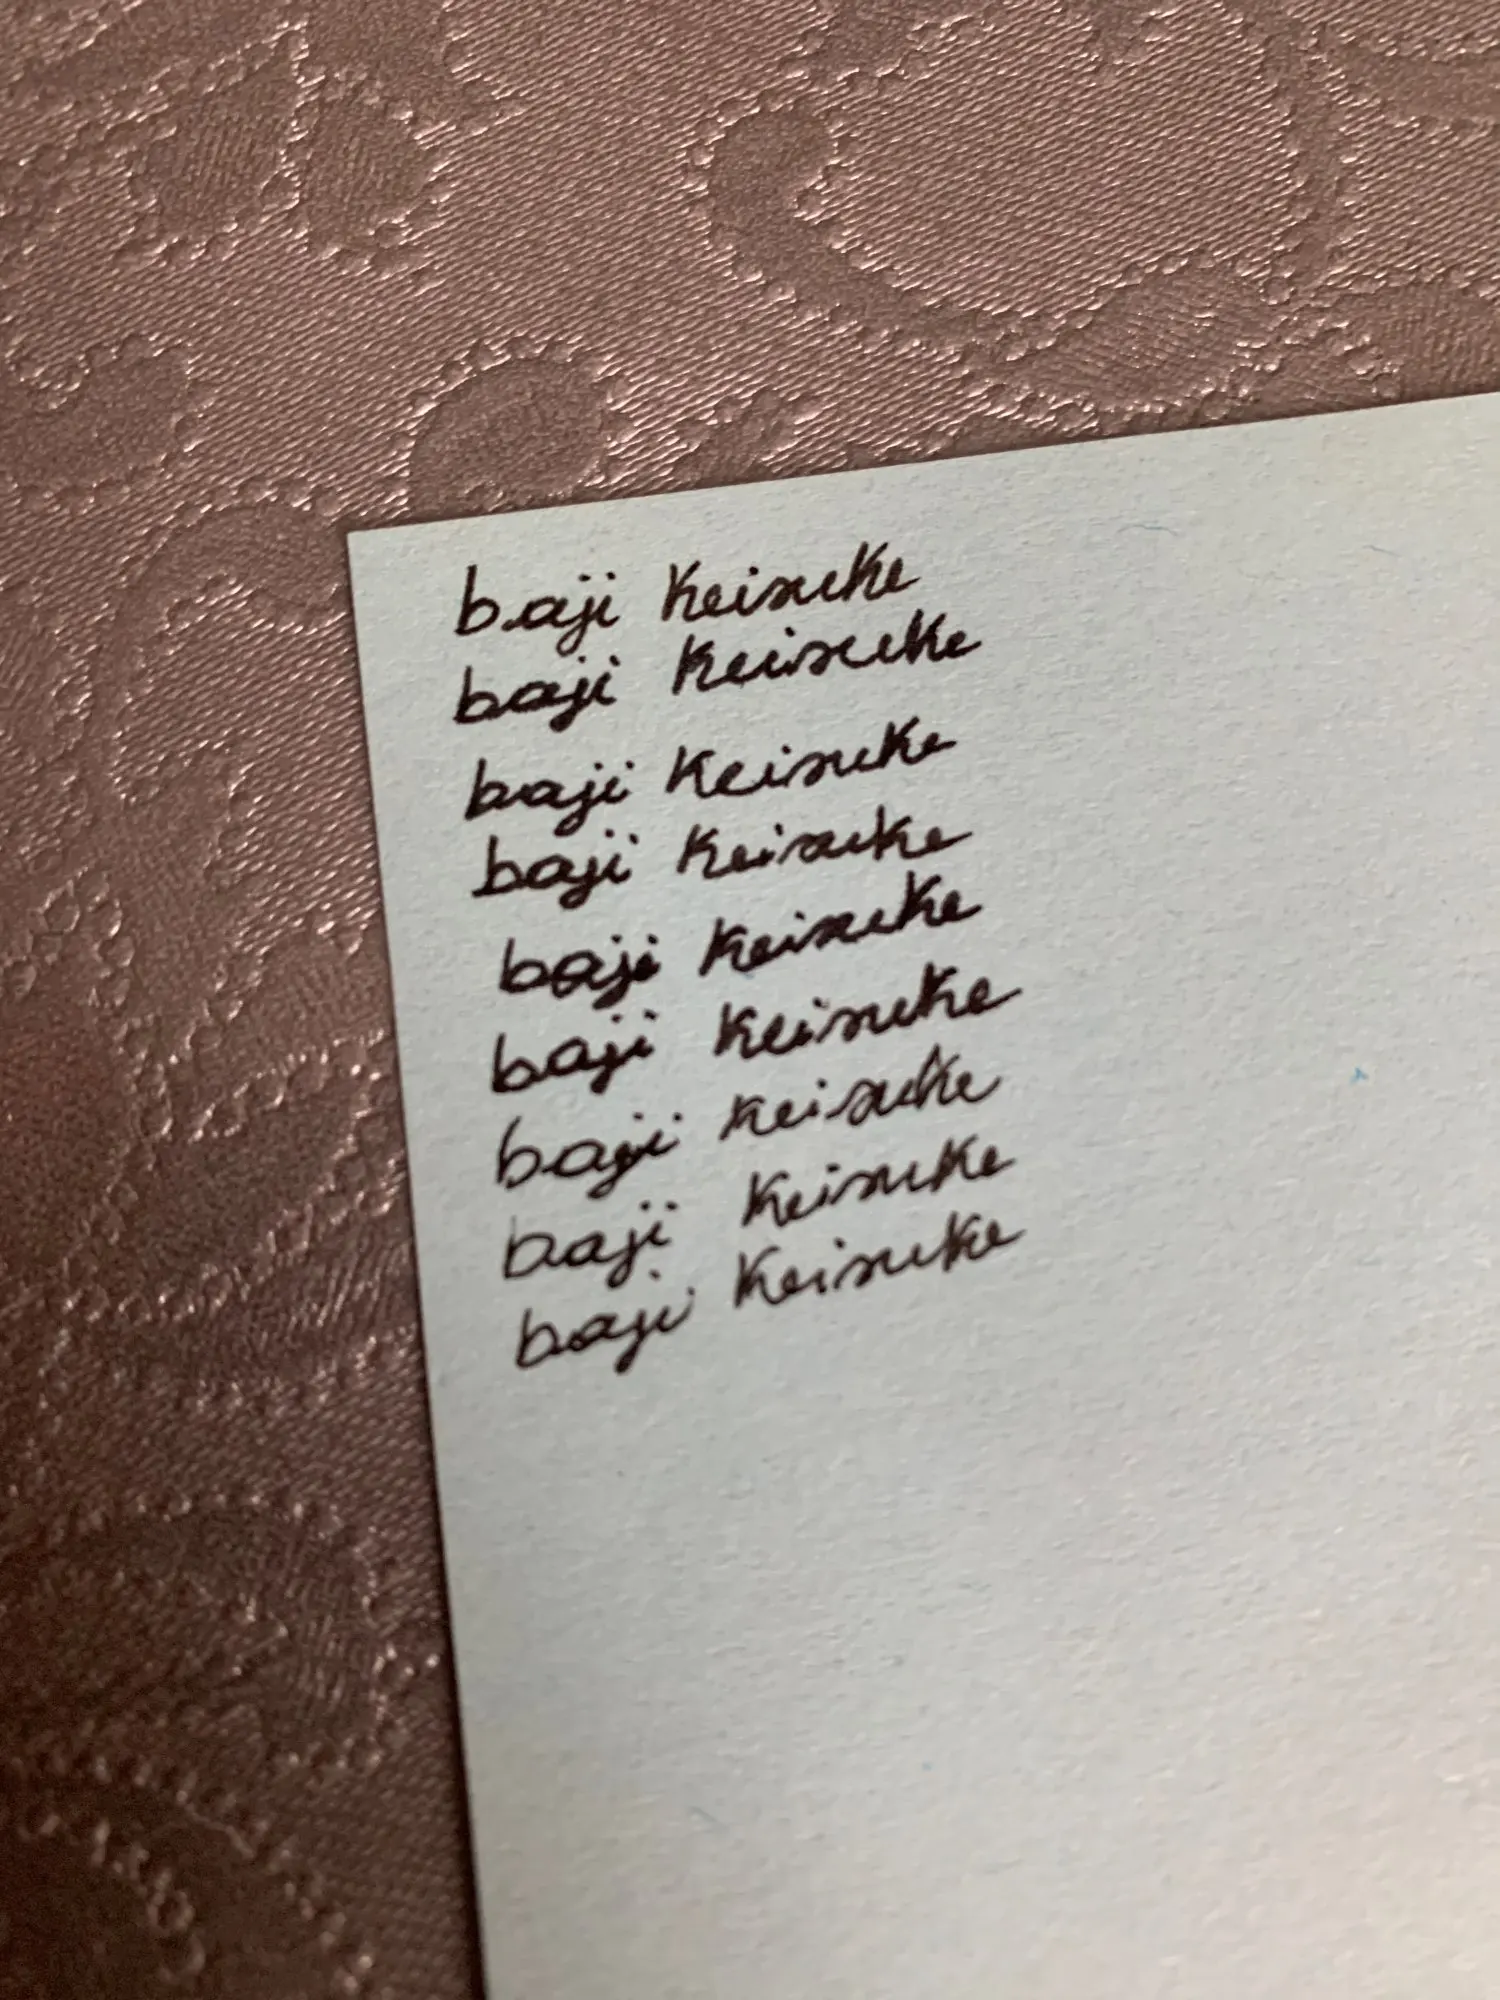 baji Keisuke
baji Keisuke
baji Keisuke
baji Keisuke
baji Keisuke
baji Keisuke
baji Keisuke
baji Keisuke
baji Keisuke